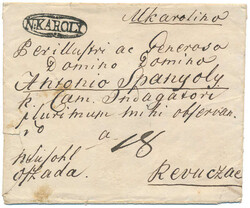 N.KAROLY
Mkarolino
Perillustri ac Generoso
Domino Domino
Antonio Spanyoly
k. Cam. Indagatori
plurimum mihi observan
a 18
Revuczae